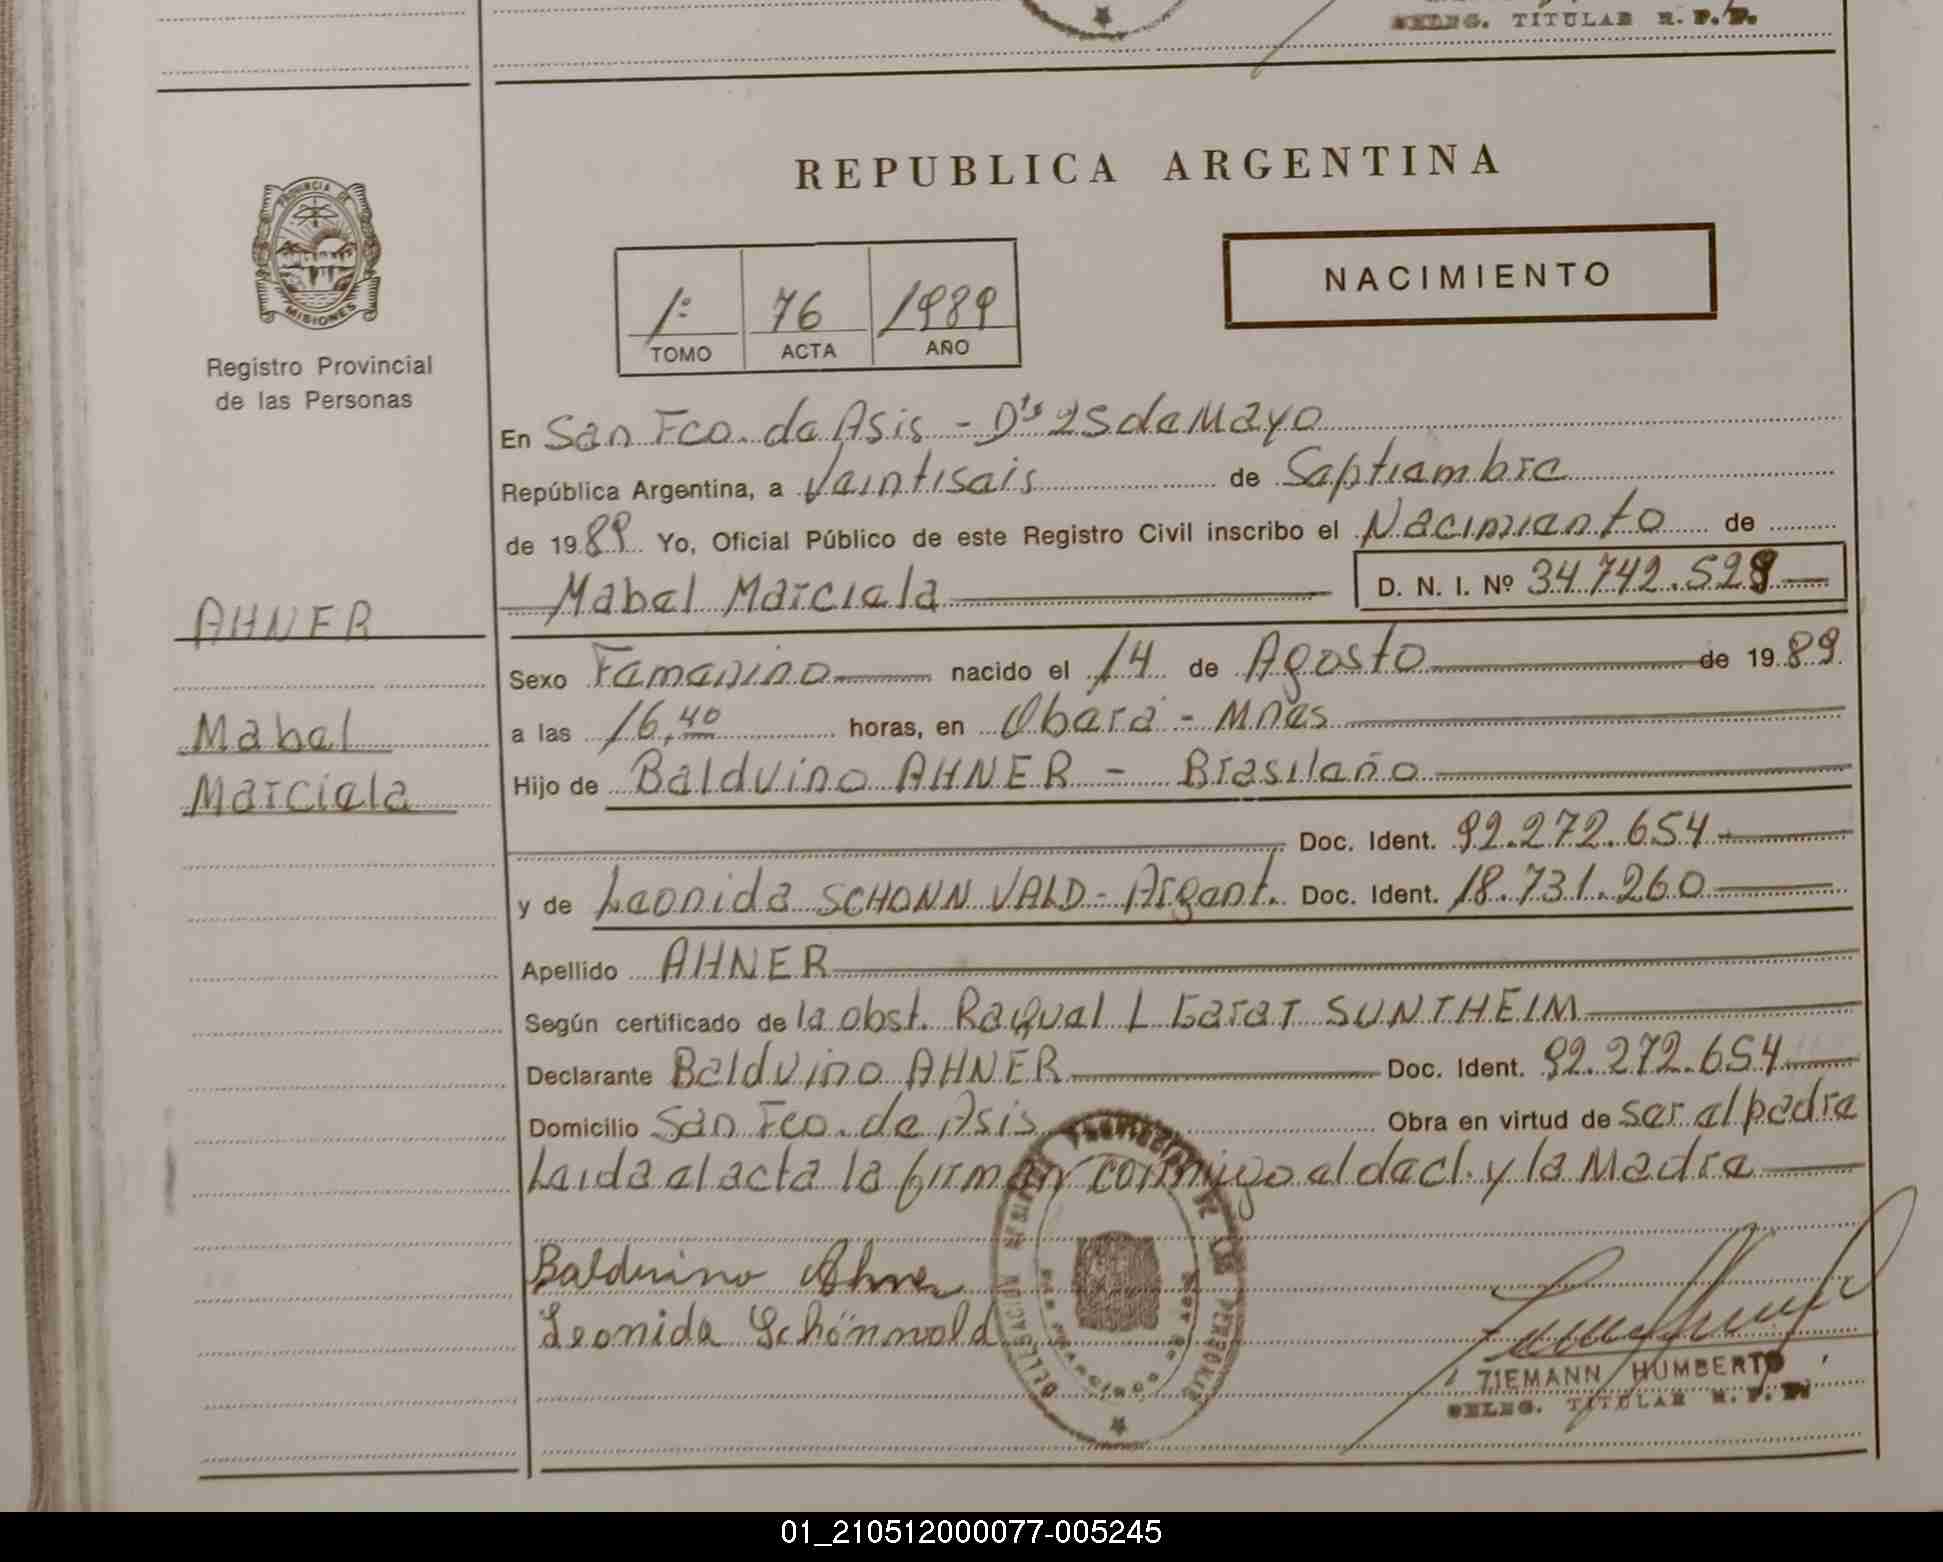 DELEG. TITULAR R. P. P.
REPUBLICA ARGENTINA
PROVINCIA DE
MISIONES
Registro Provincial
de las Personas
NACIMIENTO
1º 76 1989
TOMO ACTA AÑO
En San Fco. de Asis - Dto 25 de Mayo
República Argentina, a Veintiseis de Septiembre
de 1989 Yo, Oficial Público de este Registro Civil inscribo el Nacimiento de
Mabel Marciela D. N. I. Nº 34.742.529
AHNER
Mabel
Marciela
Sexo Femenino nacido el 14 de Agosto de 1989
a las 16,40 horas, en Oberá - Mnes
Hijo de Balduino AHNER - Brasileño
Doc. Ident. 92.272.654
y de Leonida SCHONN VALD - Argent. Doc. Ident. 18.731.260
Apellido AHNER
Según certificado de la obst. Raquel L Garat SUNTHEIM
Declarante Balduino AHNER Doc. Ident. 92.272.654
Domicilio San Fco. de Asis Obra en virtud de ser el padre
Leida el acta la firman conmigo el decl. y la Madre
Balduino Ahner
Leonida Schönnwald
ZIEMANN HUMBERTO
DELEG. TITULAR R. P. P.
01_210512000077-005245